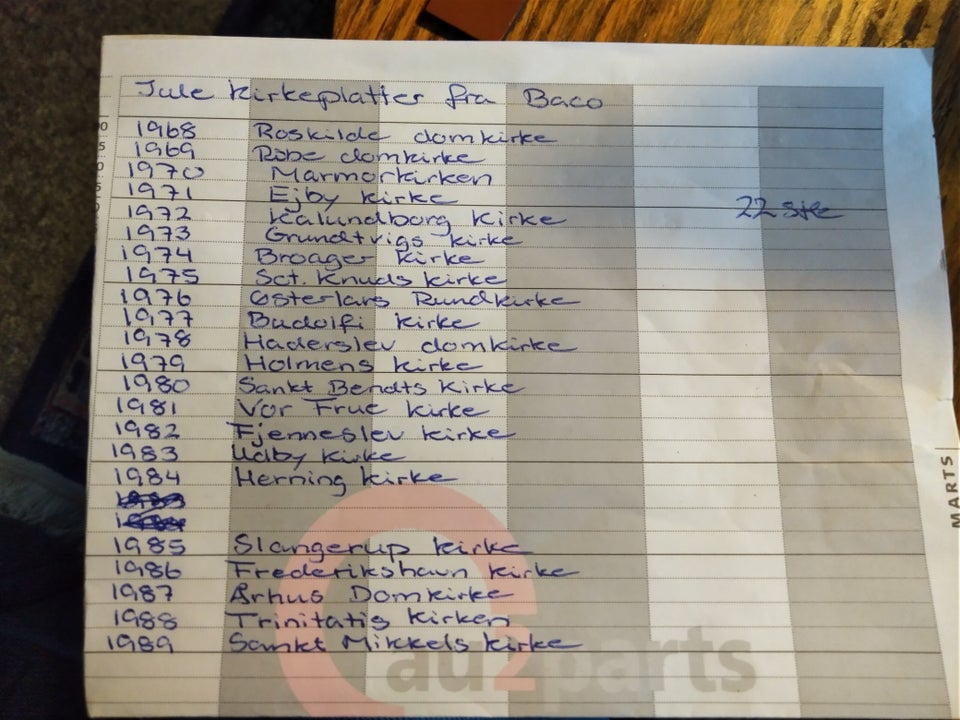 Jule Kirkeplatter fra Baco
1968 Roskilde domkirke
1969 Ribe domkirke
1970 Marmorkirken
1971 Ejby kirke
1972 Kalundborg Kirke 22 stk
1973 Grundtvigs kirke
1974 Broager kirke
1975 Sct. Knuds kirke
1976 Østerlars Rundkirke
1977 Budolfi kirke
1978 Haderslev domkirke
1979 Holmens kirke
1980 Sankt Bendts Kirke
1981 Vor Frue kirke
1982 Fjenneslev kirke
1983 Udby kirke
1984 Herning kirke
1985 Slangerup kirke
1986 Frederikshavn kirke
1987 Århus Domkirke
1988 Trinitatis Kirken
1989 Sankt Mikkels kirke
au2parts
MARTS